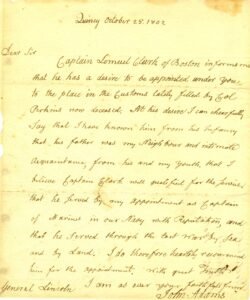 Quincy October 28. 1802
Dear Sir
Captain Lemuel Clark of Boston informs me
that he has a desire to be appointed under you
to the place in the Customs lately filled by Col
Perkins now deceased. At his desire I can cheerfully
Say that I have known him from his infancy
that his father was my Neighbour and intimate
Acquaintance from his and my youth, that I
believe Captain Clark well qualified for the service, that
he served by my appointment as Captain
of Marines in our Navy with Reputation, and
that he Served through the last War by Sea
and by Land. I do therefore heartily recommend
him for the appointment. With great
I am as ever your faithful friend
General Lincoln
John Adams